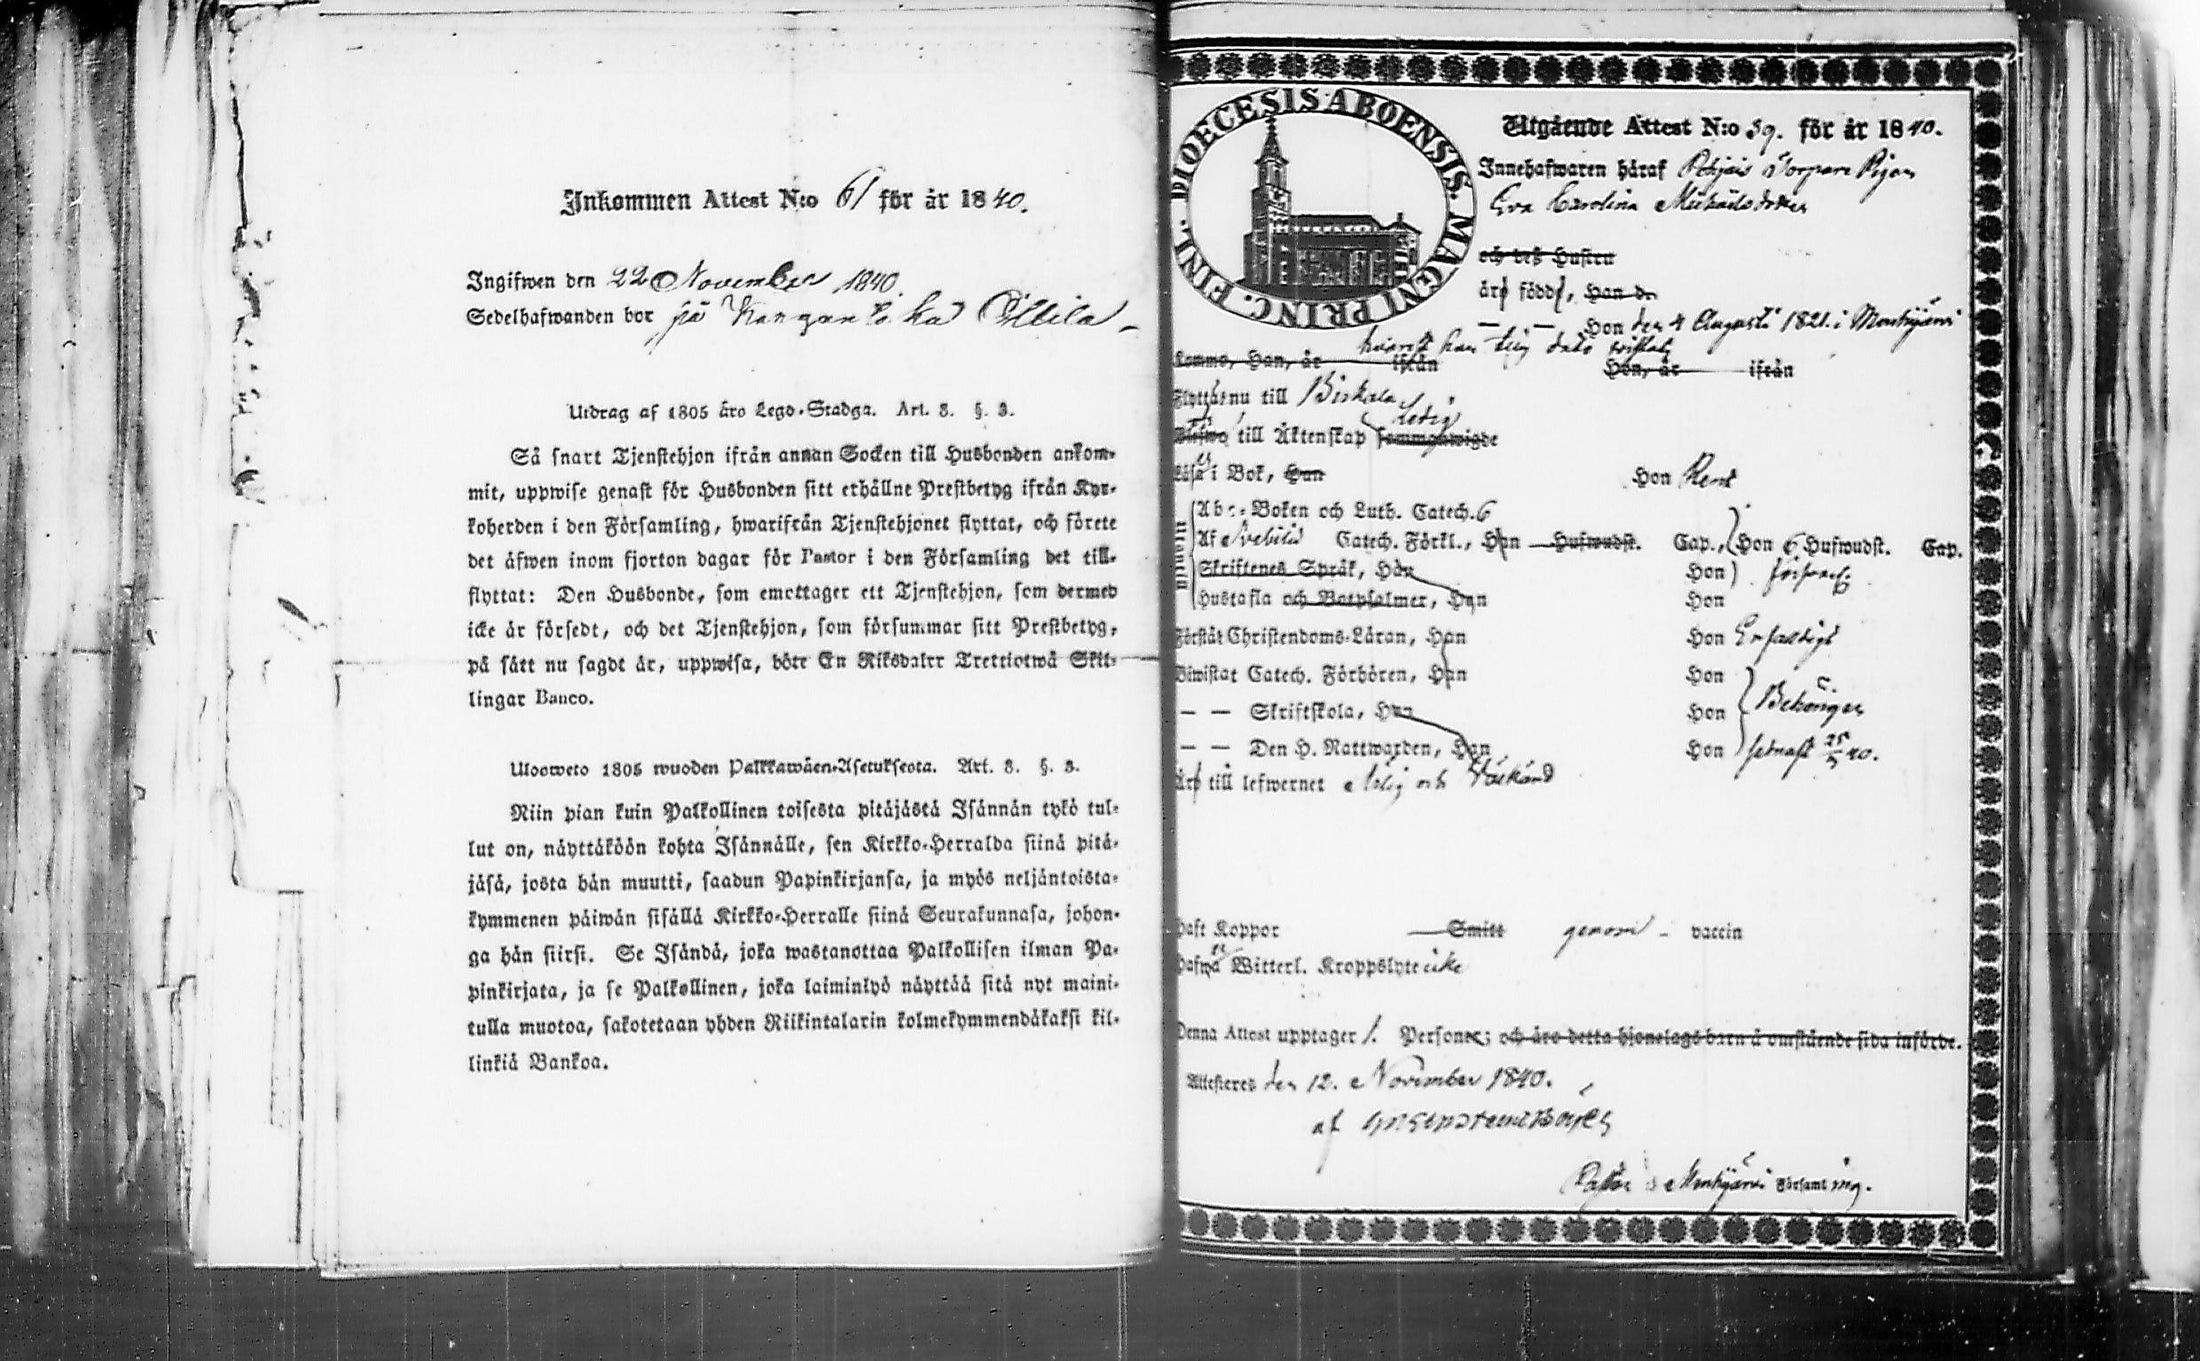 Inkommen Attest N:o 61 för år 1840.
Ingifwen den 22 November 1840.
Sedelhafwanden bor på
Utdrag af 1805 års Lego-Stadga. Art. 3. §. 3.
Så snart Tjenstehjon ifrån annan Socken till Husbonden ankom-
mit, uppwise genast för Husbonden sitt erhållne Prestbetyg ifrån Kyr-
koherden i den Församling, hwarifrån Tjenstehjonet flyttat, och förete
det äfwen inom fjorton dagar för Pastor i den Församling det till-
flyttat: Den Husbonde, som emottager ett Tjenstehjon, som dermed
icke är försedt, och det Tjenstehjon, som försummar sitt Prestbetyg,
på sätt nu sagdt är, uppwisa, böte En Riksdaler Trettiotwå Skil-
lingar Banco.
Ulosweto 1805 wuoden Palkkawäen-Asetuksesta. Art. 3. §. 3.
Niin pian kuin Palkollinen toisesta pitäjästä Isännän tykö tul-
lut on, näyttäköön kohta Isännälle, sen Kirkko-Herralda siinä pitä-
jäsä, josta hän muutti, saadun Papinkirjansa, ja myös neljäntoista-
kymmenen päiwän sisällä Kirkko-Herralle siinä Seurakunnasa, johon-
ga hän siirsi. Se Isändä, joka wastanottaa Palkollisen ilman Pa-
pinkirjata, ja se Palkollinen, joka laiminlyö näyttää sitä nyt maini-
tulla muotoa, sakotetaan yhden Riikintalarin kolmekymmendäkaksi kil-
linkiä Bankoa.
DIOECESIS ABOENSIS. MAGNI PRINC. FINL.
Utgående Attest N:o 59. för år 1840.
Innehafwaren häraf Torpare Pigan
Eva Carolina Michaelsdotter
och dess Hustru
är född, Han d.
— — Hon den 4 Augusti 1821. i Mouhijärvi
Komma, Han, år ifrån Hon, år ifrån
Flyttar nu till Biskala
till Äktenskap Ledig sammanwigde
Läser i Bok, Han Hon Rent
Utantill
Abc-Boken och Luth. Catech. 6
Af Svebilii Catech. Förkl., Han Hufwudst. Cap., Hon 6 Hufwudst. Cap.
Skriftenes Språk, Han Hon
Hustafla och Botpsalmer, Han Hon
Förstår Christendoms-Läran, Han Hon Enfaldigt
Biwistat Catech. Förhören, Han Hon
— — Skriftskola, Han Hon Behörigen
— — Den H. Nattwarden, Han Hon senast 25/5 40.
Är till lefwernet ärlig och
Haft Koppor Smitt genom vaccin
Hafwer Witterl. Kroppslyte icke
Denna Attest upptager 1. Person; och äro detta hjonelags barn å omstående sida införde.
Attesteres den 12. November 1840.
af
Pastor i Mouhijärvi Församling.